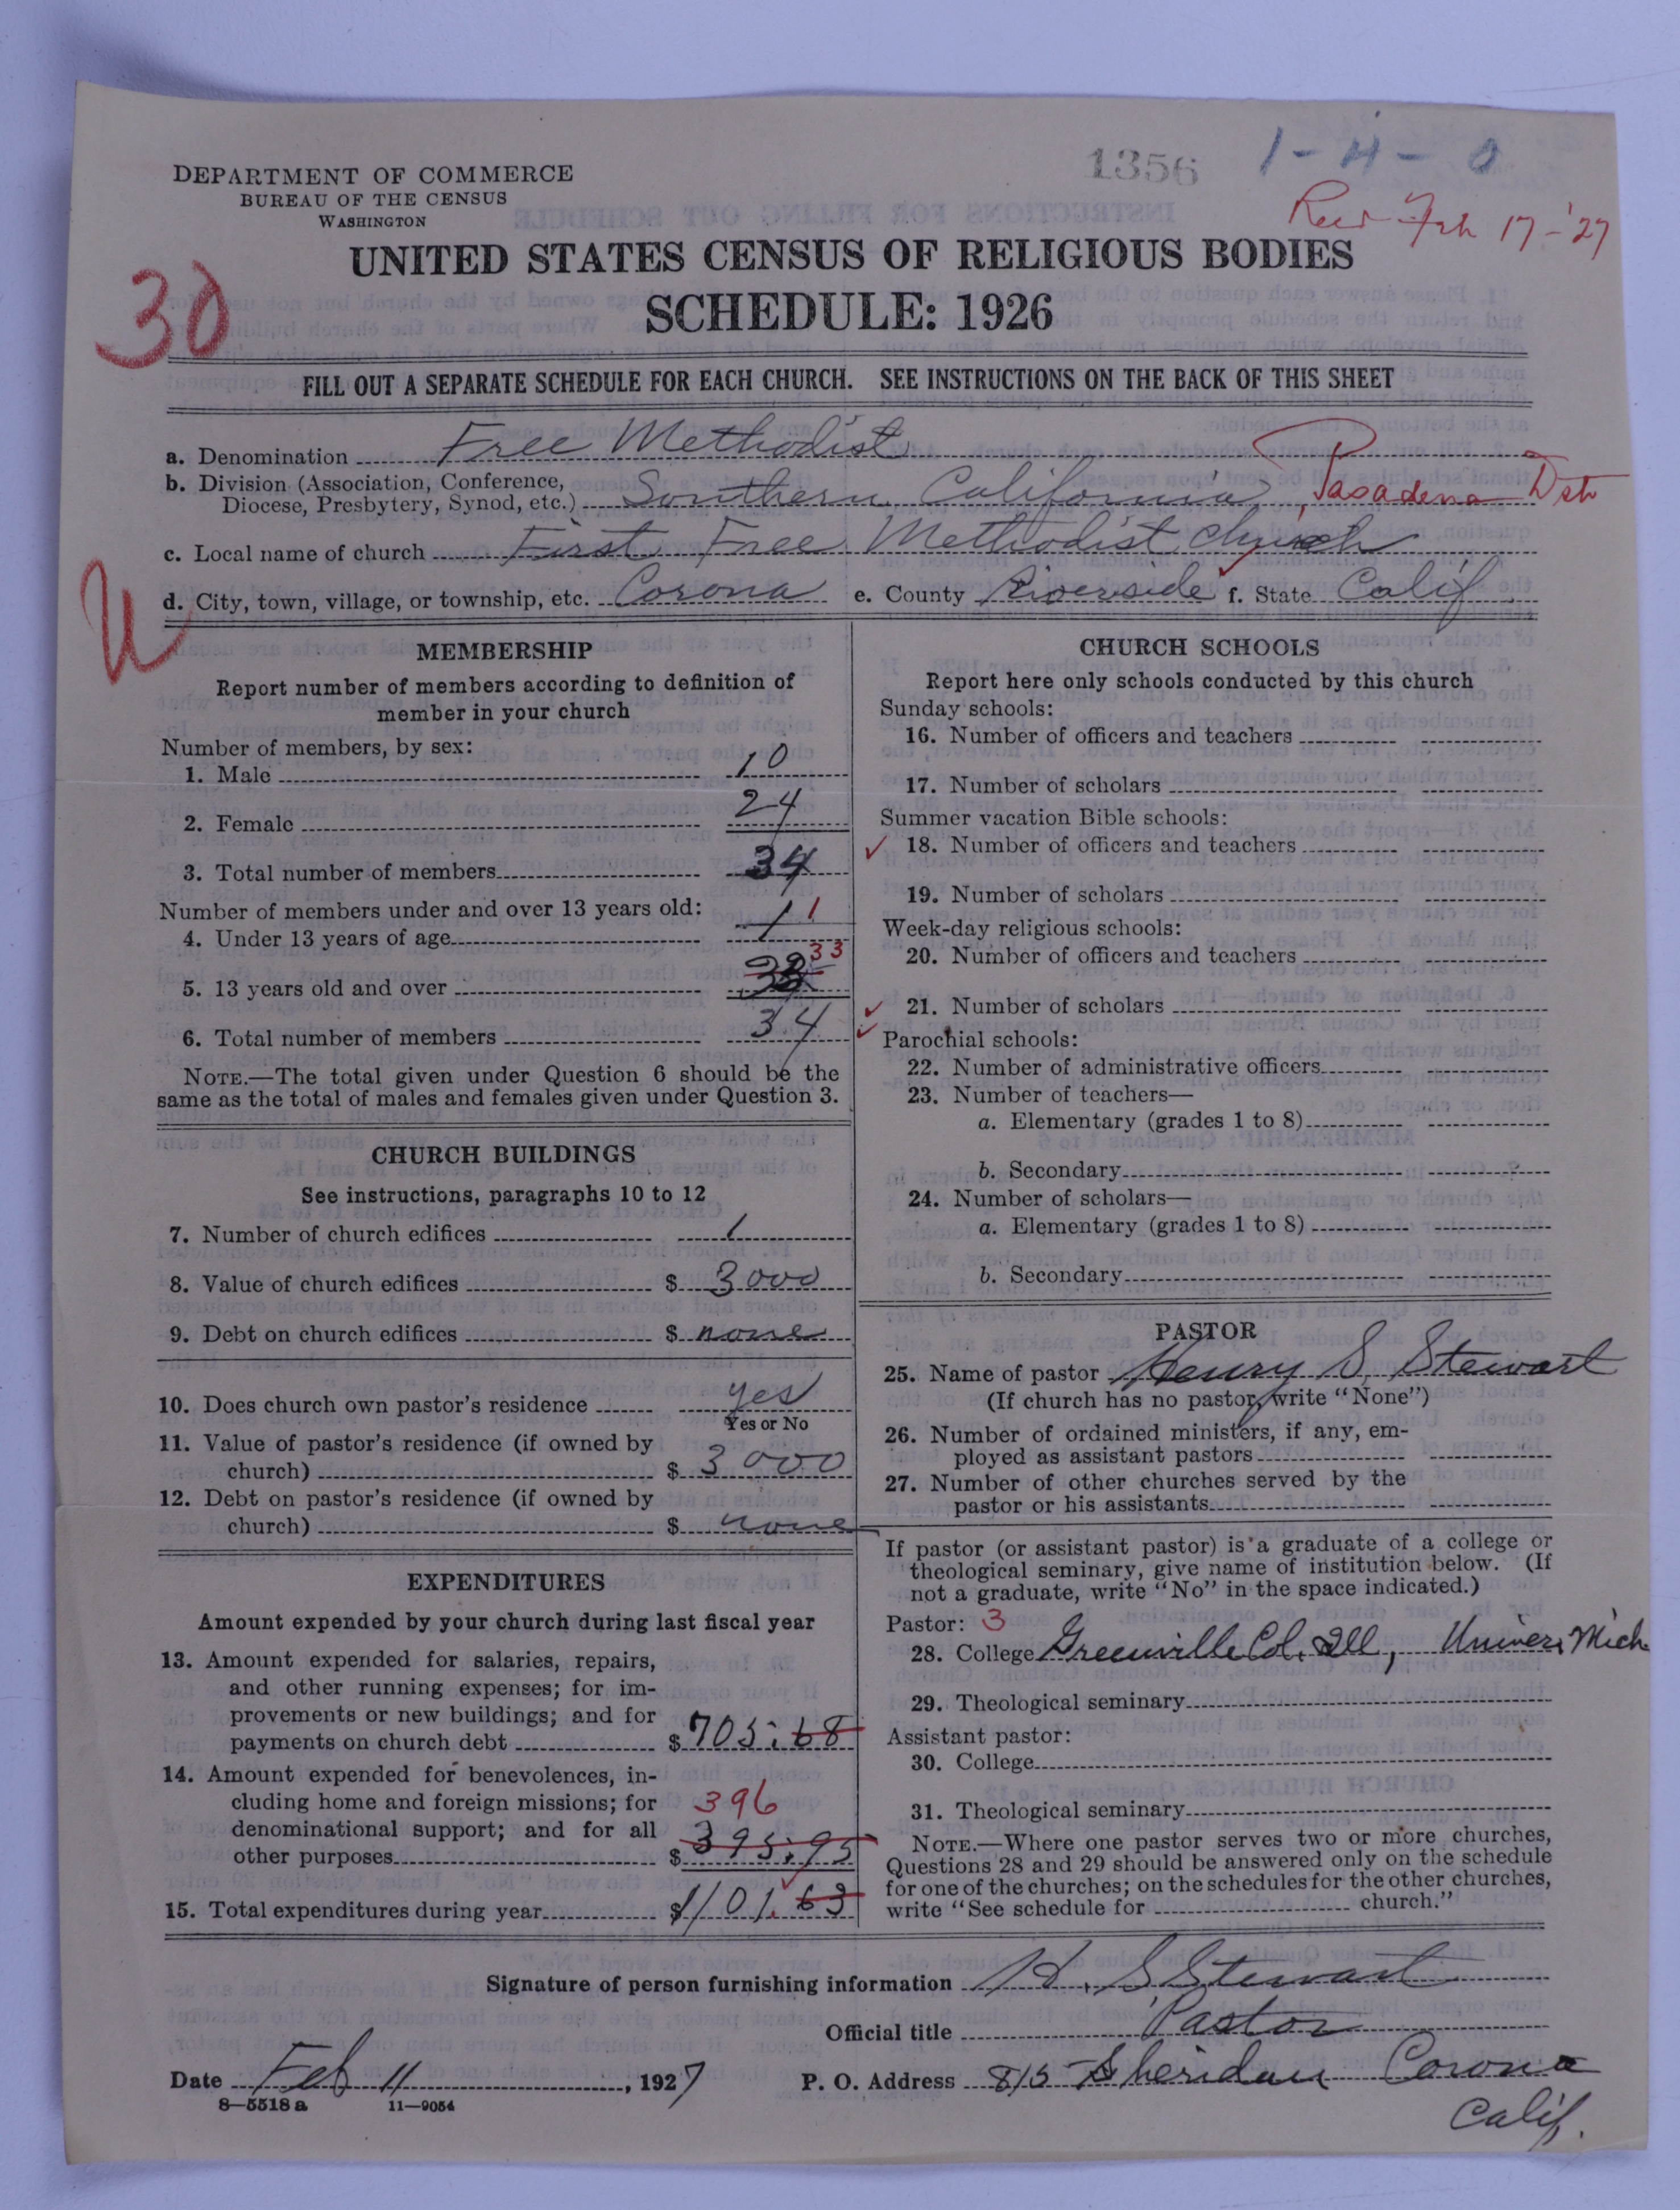 1356
1-4-0
DEPARTMENT OF COMMERCE
BUREAU OF THE CENSUS
WASHINGTON
Feb 17-'27
UNITED STATES CENSUS OF RELIGIOUS BODIES
30
SCHEDULE: 1926
FILL OUT A SEPARATE SCHEDULE FOR EACH CHURCH. SEE INSTRUCTIONS ON THE BACK OF THIS SHEET
a. Denomination Free Methodist
b. Division (Association, Conference,
Diocese, Presbytery, Synod, etc.) Southern California, Pasadena Dst
c. Local name of church First Free Methodist church
d. City, town, village, or township, etc. Corona e. County Riverside f. State Calif.
U
MEMBERSHIP
Report number of members according to definition of
member in your church
Number of members, by sex:
1. Male 10
2. Female 24
3. Total number of members 34
Number of members under and over 13 years old:
4. Under 13 years of age 1 1
5. 13 years old and over 33
6. Total number of members 34
NOTE.—The total given under Question 6 should be the
same as the total of males and females given under Question 3.
CHURCH BUILDINGS
See instructions, paragraphs 10 to 12
7. Number of church edifices 1
8. Value of church edifices $ 3000
9. Debt on church edifices $ none
10. Does church own pastor's residence yes
Yes or No
11. Value of pastor's residence (if owned by
church) $ 3000
12. Debt on pastor's residence (if owned by
church) $ none
EXPENDITURES
Amount expended by your church during last fiscal year
13. Amount expended for salaries, repairs,
and other running expenses; for im-
provements or new buildings; and for
payments on church debt $ 705.68
14. Amount expended for benevolences, in-
cluding home and foreign missions; for 396
denominational support; and for all
other purposes $ 395.95
15. Total expenditures during year $1101.63
CHURCH SCHOOLS
Report here only schools conducted by this church
Sunday schools:
16. Number of officers and teachers
17. Number of scholars
Summer vacation Bible schools:
18. Number of officers and teachers
19. Number of scholars
Week-day religious schools:
20. Number of officers and teachers
21. Number of scholars
Parochial schools:
22. Number of administrative officers
23. Number of teachers—
a. Elementary (grades 1 to 8)
b. Secondary
24. Number of scholars—
a. Elementary (grades 1 to 8)
b. Secondary
PASTOR
25. Name of pastor Henry S. Stewart
(If church has no pastor, write "None")
26. Number of ordained ministers, if any, em-
ployed as assistant pastors
27. Number of other churches served by the
pastor or his assistants
If pastor (or assistant pastor) is a graduate of a college or
theological seminary, give name of institution below. (If
not a graduate, write "No" in the space indicated.)
Pastor: 3
28. College Greenville Col. Ill, Univers Mich
29. Theological seminary
Assistant pastor:
30. College
31. Theological seminary
NOTE.—Where one pastor serves two or more churches,
Questions 28 and 29 should be answered only on the schedule
for one of the churches; on the schedules for the other churches,
write "See schedule for church."
Signature of person furnishing information H. S. Stewart
Official title Pastor
Date Feb 11, 1927 P. O. Address 815 Sheridan Corona
8-5518 a 11-9054 Calif.